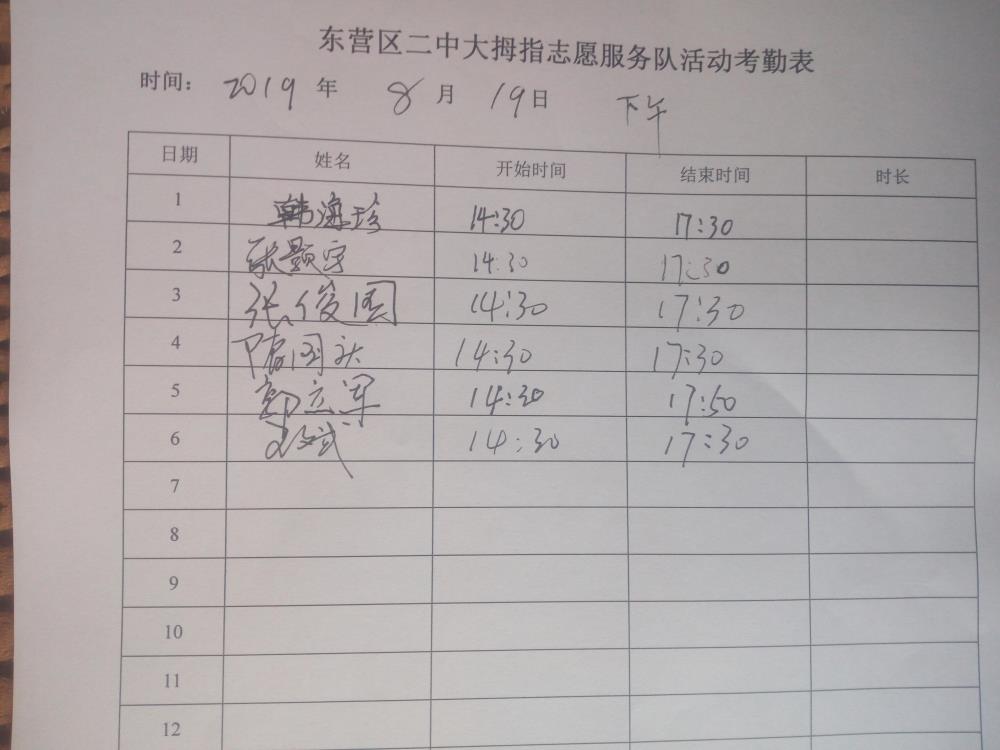 东营区二中大拇指志愿服务队活动考勤表
时间: 2019 年 8 月 19日 下午
日期 姓名 开始时间 结束时间 时长
1 韩海珍 14:30 17:30
2 张颢宇 14:30 17:30
3 张俊国 14:30 17:30
4 14:30 17:30
5 郭立军 14:30 17:50
6 14:30 17:30
7
8
9
10
11
12